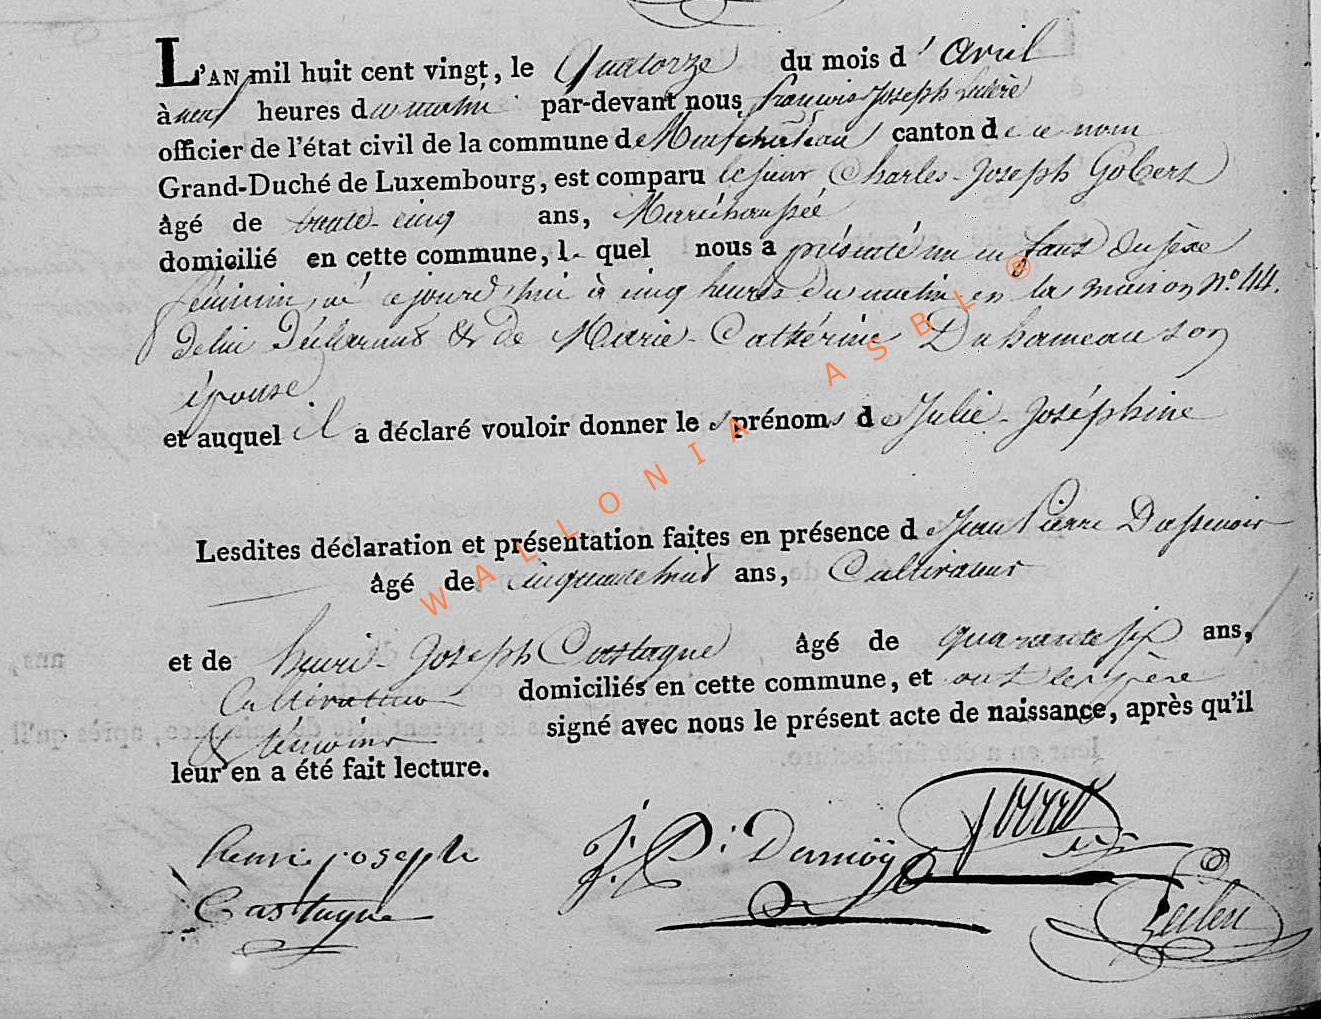 L'AN mil huit cent vingt, le Quatorze du mois d'Avril
à neuf heures du matin par-devant nous françois Joseph
officier de l'état civil de la commune de Neufchateau canton de ce nom
Grand-Duché de Luxembourg, est comparu le sieur Charles-Joseph Gobert
âgé de trente-cinq ans, Maréchaussée
domicilié en cette commune, l- quel nous a présenté un enfant du sexe
féminin, né ce jourd'hui à cinq heures du matin en la maison N.o 44.
de lui Déclarant & de Marie-Cathérine Duhameau son
épouse
et auquel il a déclaré vouloir donner les prénoms de Julie-Joséphine
Lesdites déclaration et présentation faites en présence de Jean Pierre
âgé de cinquante huit ans, Cultivateur
et de henri-Joseph Castagne âgé de quarante six ans,
Cultivateur domiciliés en cette commune, et ont les père
& témoins signé avec nous le présent acte de naissance, après qu'il
leur en a été fait lecture.
henri joseph
Castagne
J. P. 
WALLONIA ASBL ®